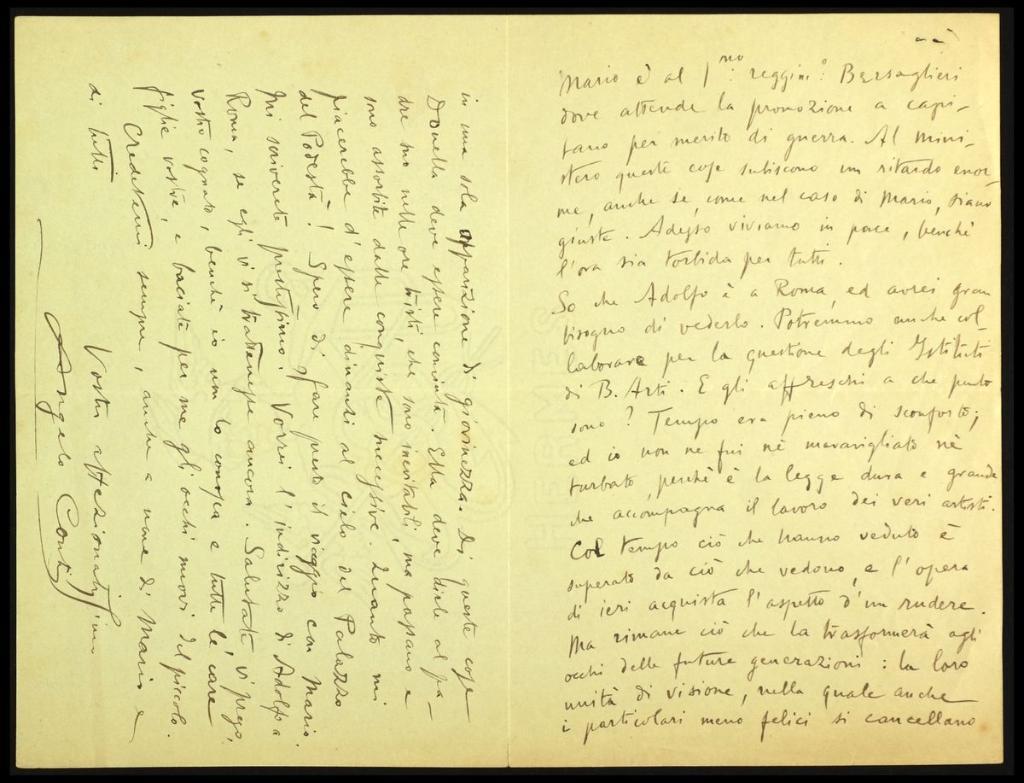 Mario è al 1.no reggim.o Bersaglieri
dove attende la promozione a capi-
tano per merito di guerra. Al mini-
stero queste cose subiscono un ritardo enor-
me, anche se, come nel caso di Mario, siano
giuste. Adesso viviamo in pace, benchè
l'ora sia torbida per tutti.
So che Adolfo è a Roma, ed avrei gran
bisogno di vederlo. Potremmo anche col-
laborare per la questione degli Istituti
di B. Arti. E gli affreschi a che punto
sono? Tempo era pieno di sconforto;
ed io non ne fui nè maravigliato nè
turbato, perchè è la legge dura e grande
che accompagna il lavoro dei veri artisti.
Col tempo ciò che hanno veduto è
superato da ciò che vedono, e l'opera
di ieri acquista l'aspetto d'un rudere.
Ma rimane ciò che la trasformerà agli
occhi delle future generazioni: la loro
unità di visione, nella quale anche
i particolari meno felici si cancellano
in una sola apparizione di giovinezza. Di queste cose
Donella deve essere convinta. Ella deve dirle al pa-
dre suo nelle ore tristi, che sono inevitabili, ma passano e
sono assorbite dalle conquiste successive. Quanto mi
piacerebbe d'essere dinanzi al cielo del Palazzo
del Podestà! Spero di fare presto il viaggio con Mario.
Mi scriverete prestissimo? Vorrei l'indirizzo di Adolfo a
Roma, se egli vi si trattenesse ancora. Salutate vi prego,
vostro cognato, benchè io non lo conosca e tutte le care
figlie vostre, e baciate per me gli occhi nuovi del piccolo.
Credetemi sempre, anche a nome di Mario e
di tutti
Vostro affezionatissimo
Angelo Conti